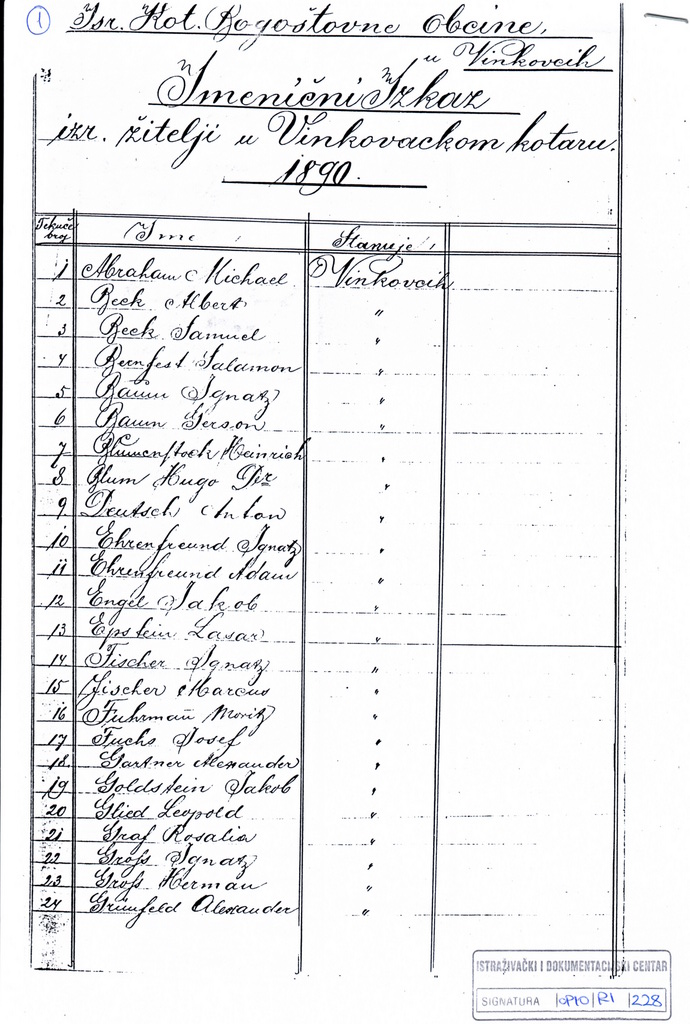 1
Isr. Kot. Bogoštovne Obćine,
u Vinkovcih
Imenični Izkaz
izr. žitelji u Vinkovackom kotaru.
1890.
Tekuće broj Ime Stanuje
1 Abraham Michael Vinkovcih
2 Beck Albert "
3 Beck Samuel "
4 Bernfest Salamon "
5 Baum Ignatz "
6 Baum Gerson "
7 Blumenstock Heinrich "
8 Blum Hugo Dr "
9 Deutsch Anton "
10 Ehrenfreund Ignatz "
11 Ehrenfreund Adam "
12 Engel Jakob "
13 Epstein Lasar "
14 Fischer Ignatz "
15 Fischer Marcus "
16 Fuhrman̄ Moritz "
17 Fuchs Josef "
18 Gartner Alexander "
19 Goldstein Jakob "
20 Glied Leopold "
21 Graf Rosalia "
22 Groſs Ignatz "
23 Groſs Herman "
24 Grünfeld Alexander "
ISTRAŽIVAČKI I DOKUMENTACIJSKI CENTAR
SIGNATURA OPIO RI 228